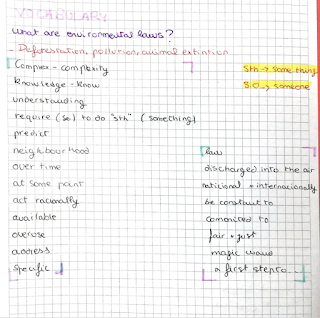 VOCABULARY
What are environmental laws?
- Deforestation, pollution, animal extintion
Complex - complexity
Sth → something
Knowledge - know
S.O → someone
understanding
require (so) to do "sth" (something)
predict
neighbourhood
over time
at some point
act racionally
available
overuse
address
Specific
law
discharged into the air
national + internacionally
be constant to
commited to
fair + just
magic wand
a first step to...